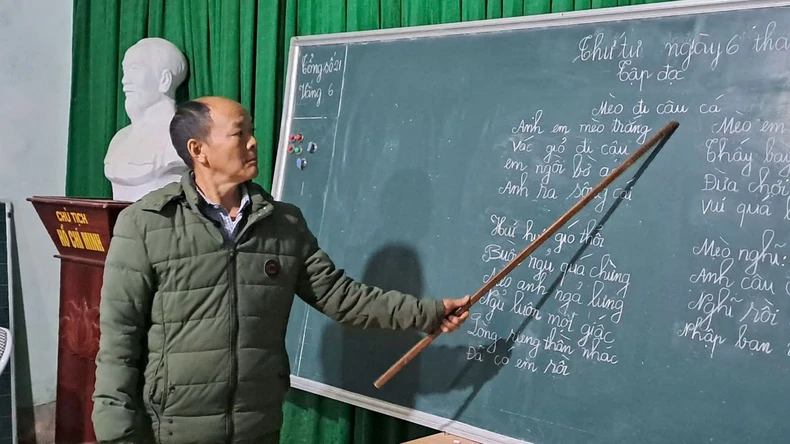 CHỦ TỊCH
HỒ CHÍ MINH
Tổng số 21
Vắng 6
Thứ tư ngày 6 thá
Tập đọc
Mèo đi câu cá
Anh em mèo trắng
Vác giỏ đi câu
em ngồi bờ a
Anh ra sông cái
Hiu hiu gió thổi
Buồn ngủ quá chừng
Mèo anh ngả lưng
Ngủ luôn một giấc
Lòng riêng thầm nhac
Đã có em rồi
Mèo em
Thấy bầy
Đùa chơi
Vui quá
Mèo nghĩ:
Anh câu
Nghĩ rồi
nhập bọn